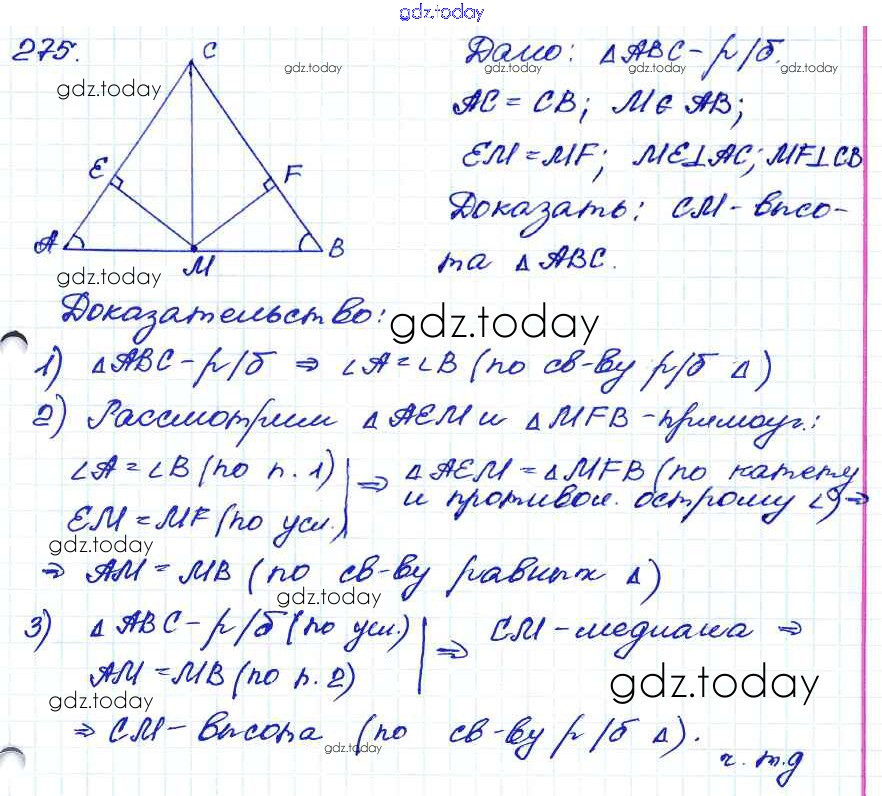 gdz.today
275.
C
gdz.today
E
F
A
M
B
gdz.today
Дано: gdz.today △ABC - р/б. gdz.today
AC = CB; M ∈ AB;
EM = MF; ME⊥AC; MF⊥CB
Доказать: CM - высо-
та △ABC.
Доказательство:
gdz.today
1) △ABC - р/б ⇒ ∠A = ∠B (по св-ву р/б △)
2) Рассмотрим △AEM и △MFB - прямоуг.:
∠A = ∠B (по п. 1) ⇒ △AEM = △MFB (по катету
EM = MF (по усл.) и противол. острому ∠) ⇒
gdz.today
⇒ AM = MB (по св-ву равных △)
gdz.today
3) △ABC - р/б (по усл.) ⇒ CM - медиана ⇒
AM = MB (по п. 2)
gdz.today
gdz.today
⇒ CM - высота (по св-ву р/б △).
gdz.today
ч.т.д